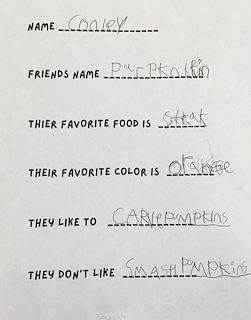 NAME Conley
FRIENDS NAME
THIER FAVORITE FOOD IS Steak
THEIR FAVORITE COLOR IS orange
THEY LIKE TO CARVEPUMPKINS
THEY DON'T LIKE SMASHPUMPKINS